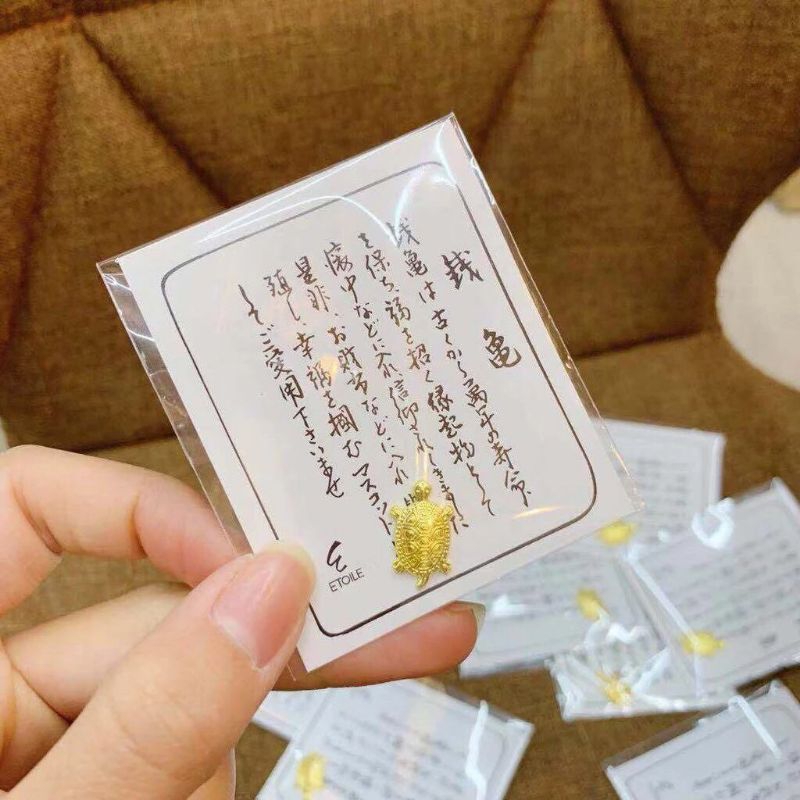 銭亀
銭亀は古くから萬年の寿命
を保ち福を招く縁起物として
懐中などに入れ信仰されてきました
是非、お財布などに入れ
殖し、幸福を掴むマスコット
してご愛用下さいませ
ETOILE